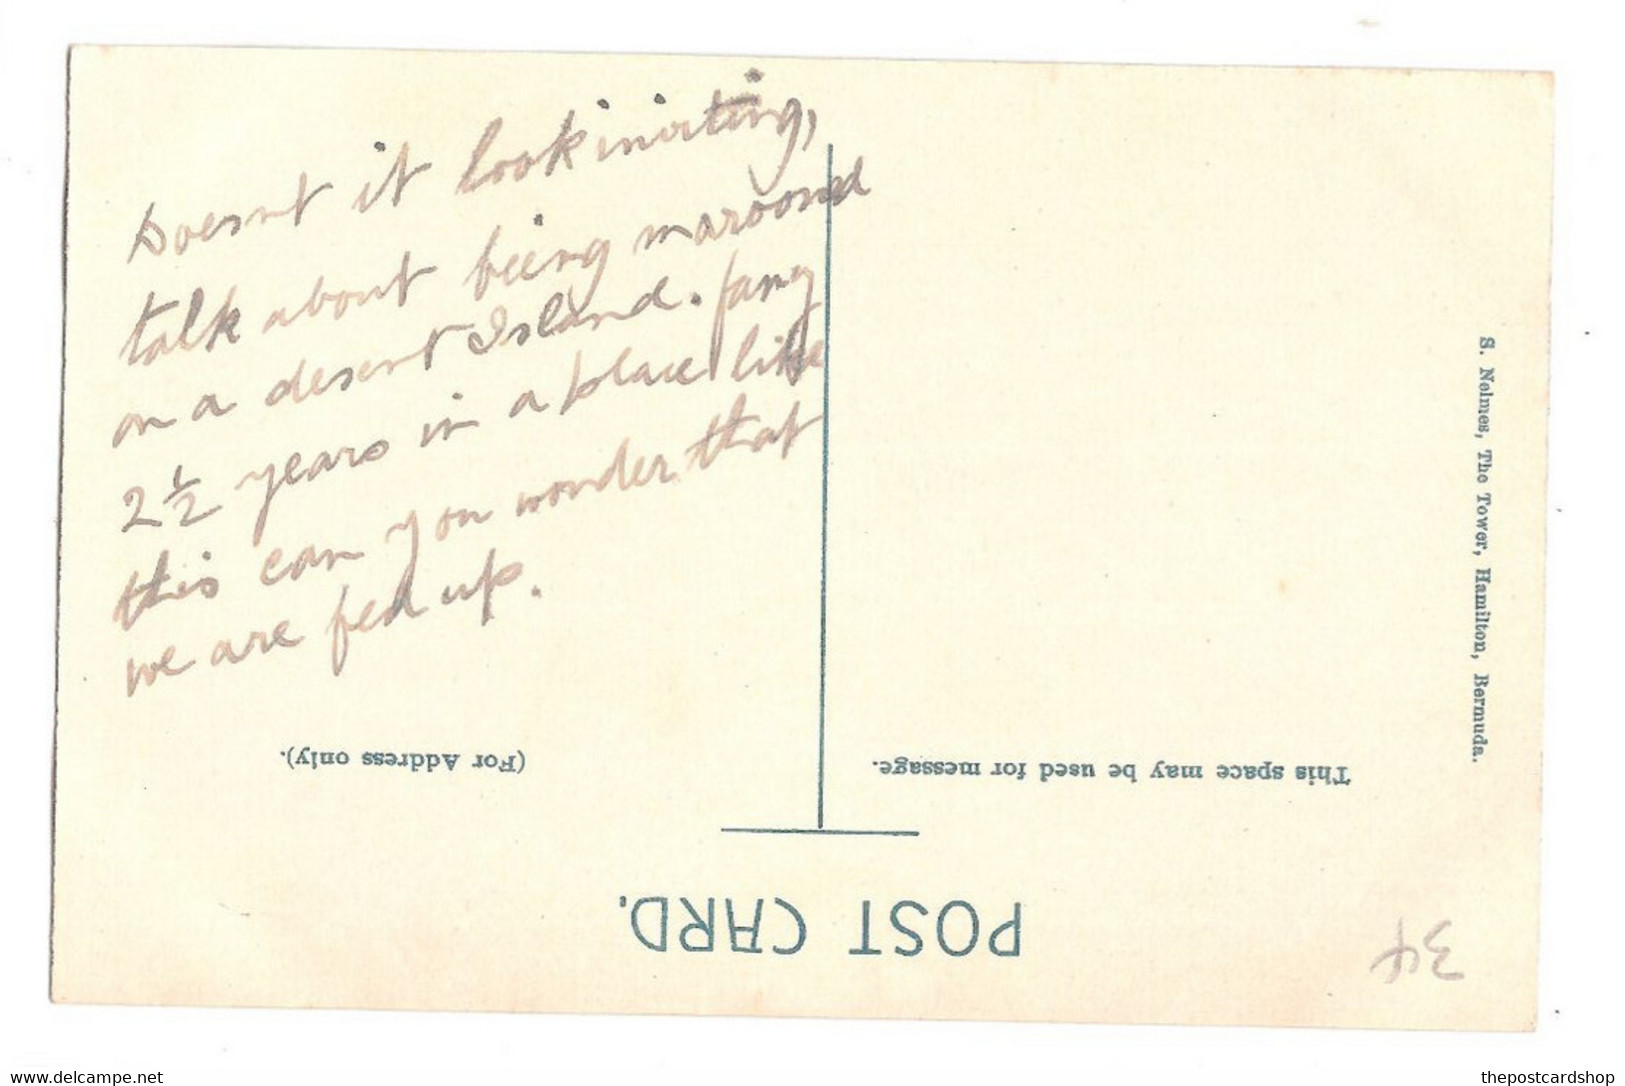 Doesnt it look inviting,
talk about being maroond
on a desert Island. fancy
2½ years in a place like
this can you wonder that
we are fed up.
(For Address only).
This space may be used for message.
POST CARD.
S. Nelmes, The Tower, Hamilton, Bermuda.
www.delcampe.net
thepostcardshop